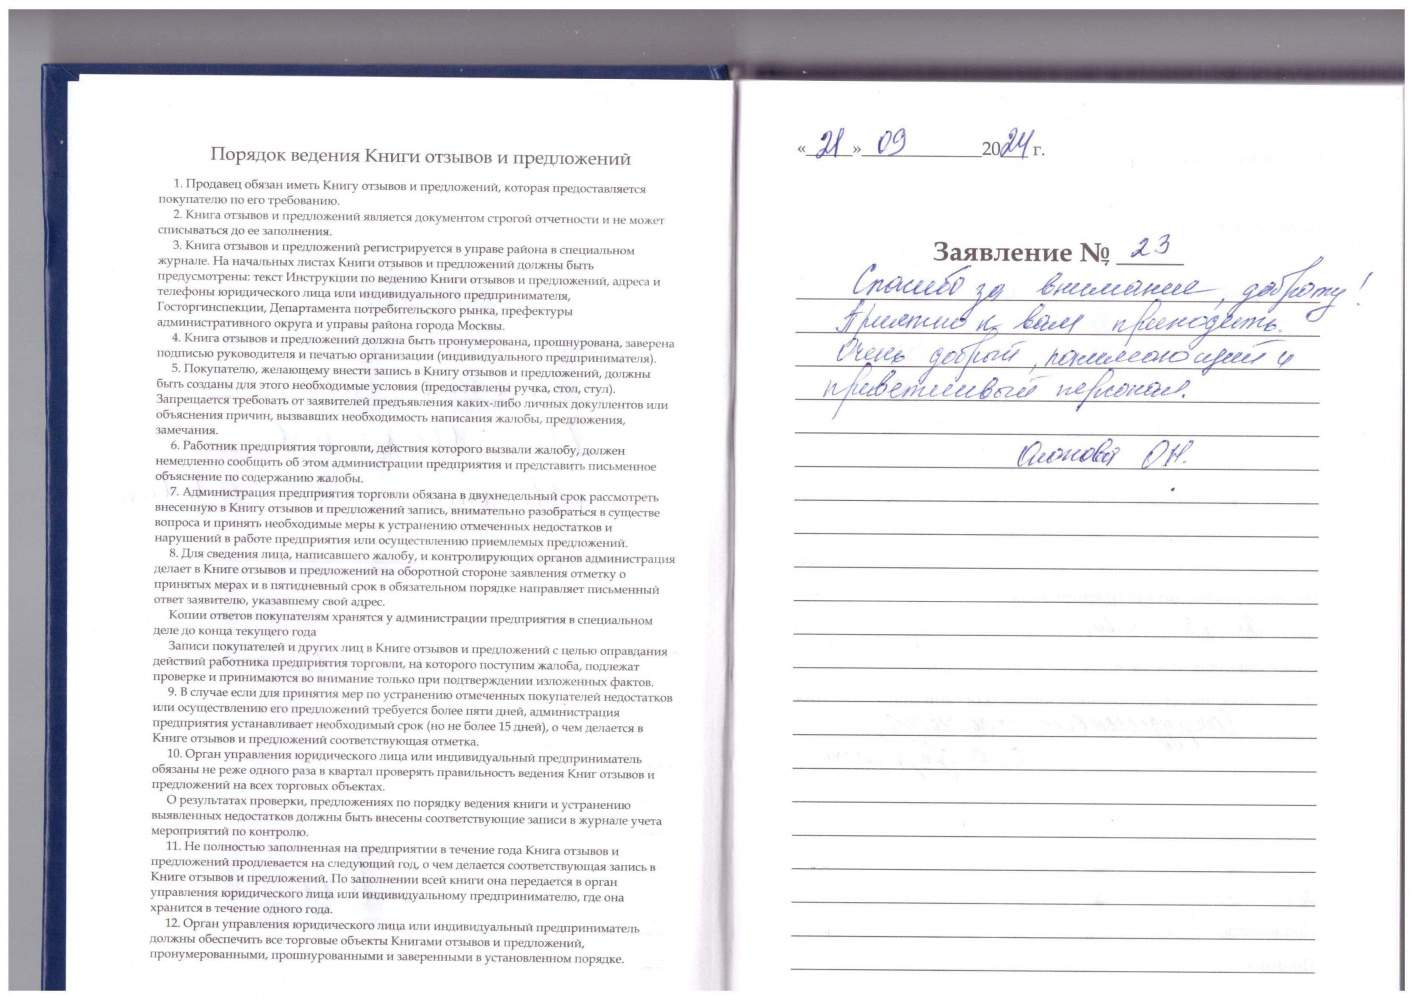 Порядок ведения Книги отзывов и предложений
1. Продавец обязан иметь Книгу отзывов и предложений, которая предоставляется
покупателю по его требованию.
2. Книга отзывов и предложений является документом строгой отчетности и не может
списываться до ее заполнения.
3. Книга отзывов и предложений регистрируется в управе района в специальном
журнале. На начальных листах Книги отзывов и предложений должны быть
предусмотрены: текст Инструкции по ведению Книги отзывов и предложений, адреса и
телефоны юридического лица или индивидуального предпринимателя,
Госторгинспекции, Департамента потребительского рынка, префектуры
административного округа и управы района города Москвы.
4. Книга отзывов и предложений должна быть пронумерована, прошнурована, заверена
подписью руководителя и печатью организации (индивидуального предпринимателя).
5. Покупателю, желающему внести запись в Книгу отзывов и предложений, должны
быть созданы для этого необходимые условия (предоставлены ручка, стол, стул).
Запрещается требовать от заявителей предъявления каких-либо личных докуллентов или
объяснения причин, вызвавших необходимость написания жалобы, предложения,
замечания.
6. Работник предприятия торговли, действия которого вызвали жалобу, должен
немедленно сообщить об этом администрации предприятия и представить письменное
объяснение по содержанию жалобы.
7. Администрация предприятия торговли обязана в двухнедельный срок рассмотреть
внесенную в Книгу отзывов и предложений запись, внимательно разобраться в существе
вопроса и принять необходимые меры к устранению отмеченных недостатков и
нарушений в работе предприятия или осуществлению приемлемых предложений.
8. Для сведения лица, написавшего жалобу, и контролирующих органов администрация
делает в Книге отзывов и предложений на оборотной стороне заявления отметку о
принятых мерах и в пятидневный срок в обязательном порядке направляет письменный
ответ заявителю, указавшему свой адрес.
Копии ответов покупателям хранятся у администрации предприятия в специальном
деле до конца текущего года
Записи покупателей и других лиц в Книге отзывов и предложений с целью оправдания
действий работника предприятия торговли, на которого поступим жалоба, подлежат
проверке и принимаются во внимание только при подтверждении изложенных фактов.
9. В случае если для принятия мер по устранению отмеченных покупателей недостатков
или осуществлению его предложений требуется более пяти дней, администрация
предприятия устанавливает необходимый срок (но не более 15 дней), о чем делается в
Книге отзывов и предложений соответствующая отметка.
10. Орган управления юридического лица или индивидуальный предприниматель
обязаны не реже одного раза в квартал проверять правильность ведения Книг отзывов и
предложений на всех торговых объектах.
О результатах проверки, предложениях по порядку ведения книги и устранению
выявленных недостатков должны быть внесены соответствующие записи в журнале учета
мероприятий по контролю.
11. Не полностью заполненная на предприятии в течение года Книга отзывов и
предложений продлевается на следующий год, о чем делается соответствующая запись в
Книге отзывов и предложений. По заполнении всей книги она передается в орган
управления юридического лица или индивидуальному предпринимателю, где она
хранится в течение одного года.
12. Орган управления юридического лица или индивидуальный предприниматель
должны обеспечить все торговые объекты Книгами отзывов и предложений,
пронумерованными, прошнурованными и заверенными в установленном порядке.
«21» 09 2024 г.
Заявление № 23
Спасибо за внимание, доброту!
Приятно к вам приходить.
Очень добрый, понимающий и
приветливый персонал.
О.Н.